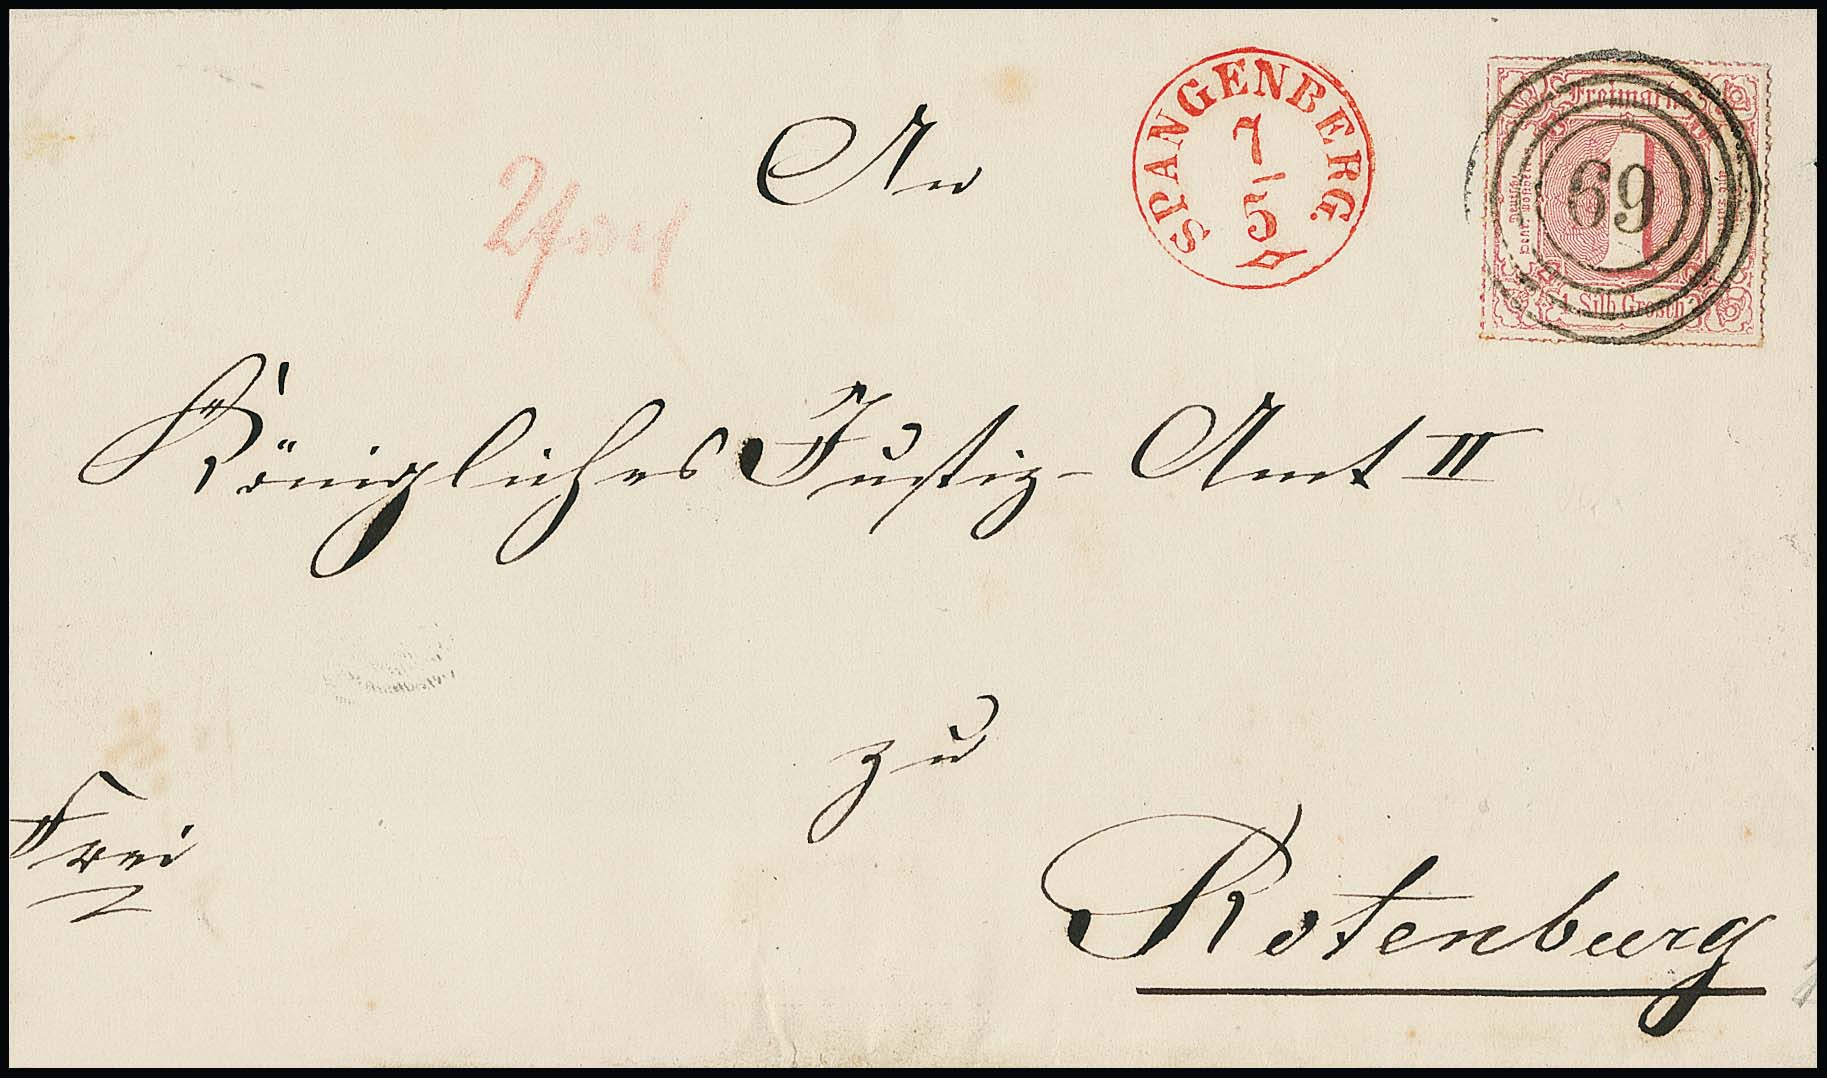 An
SPANGENBERG
7/5
Freimarke
69
1
1 Silb. Grosch
Königliches Justiz-Amt II
zu
Frei
Rotenburg